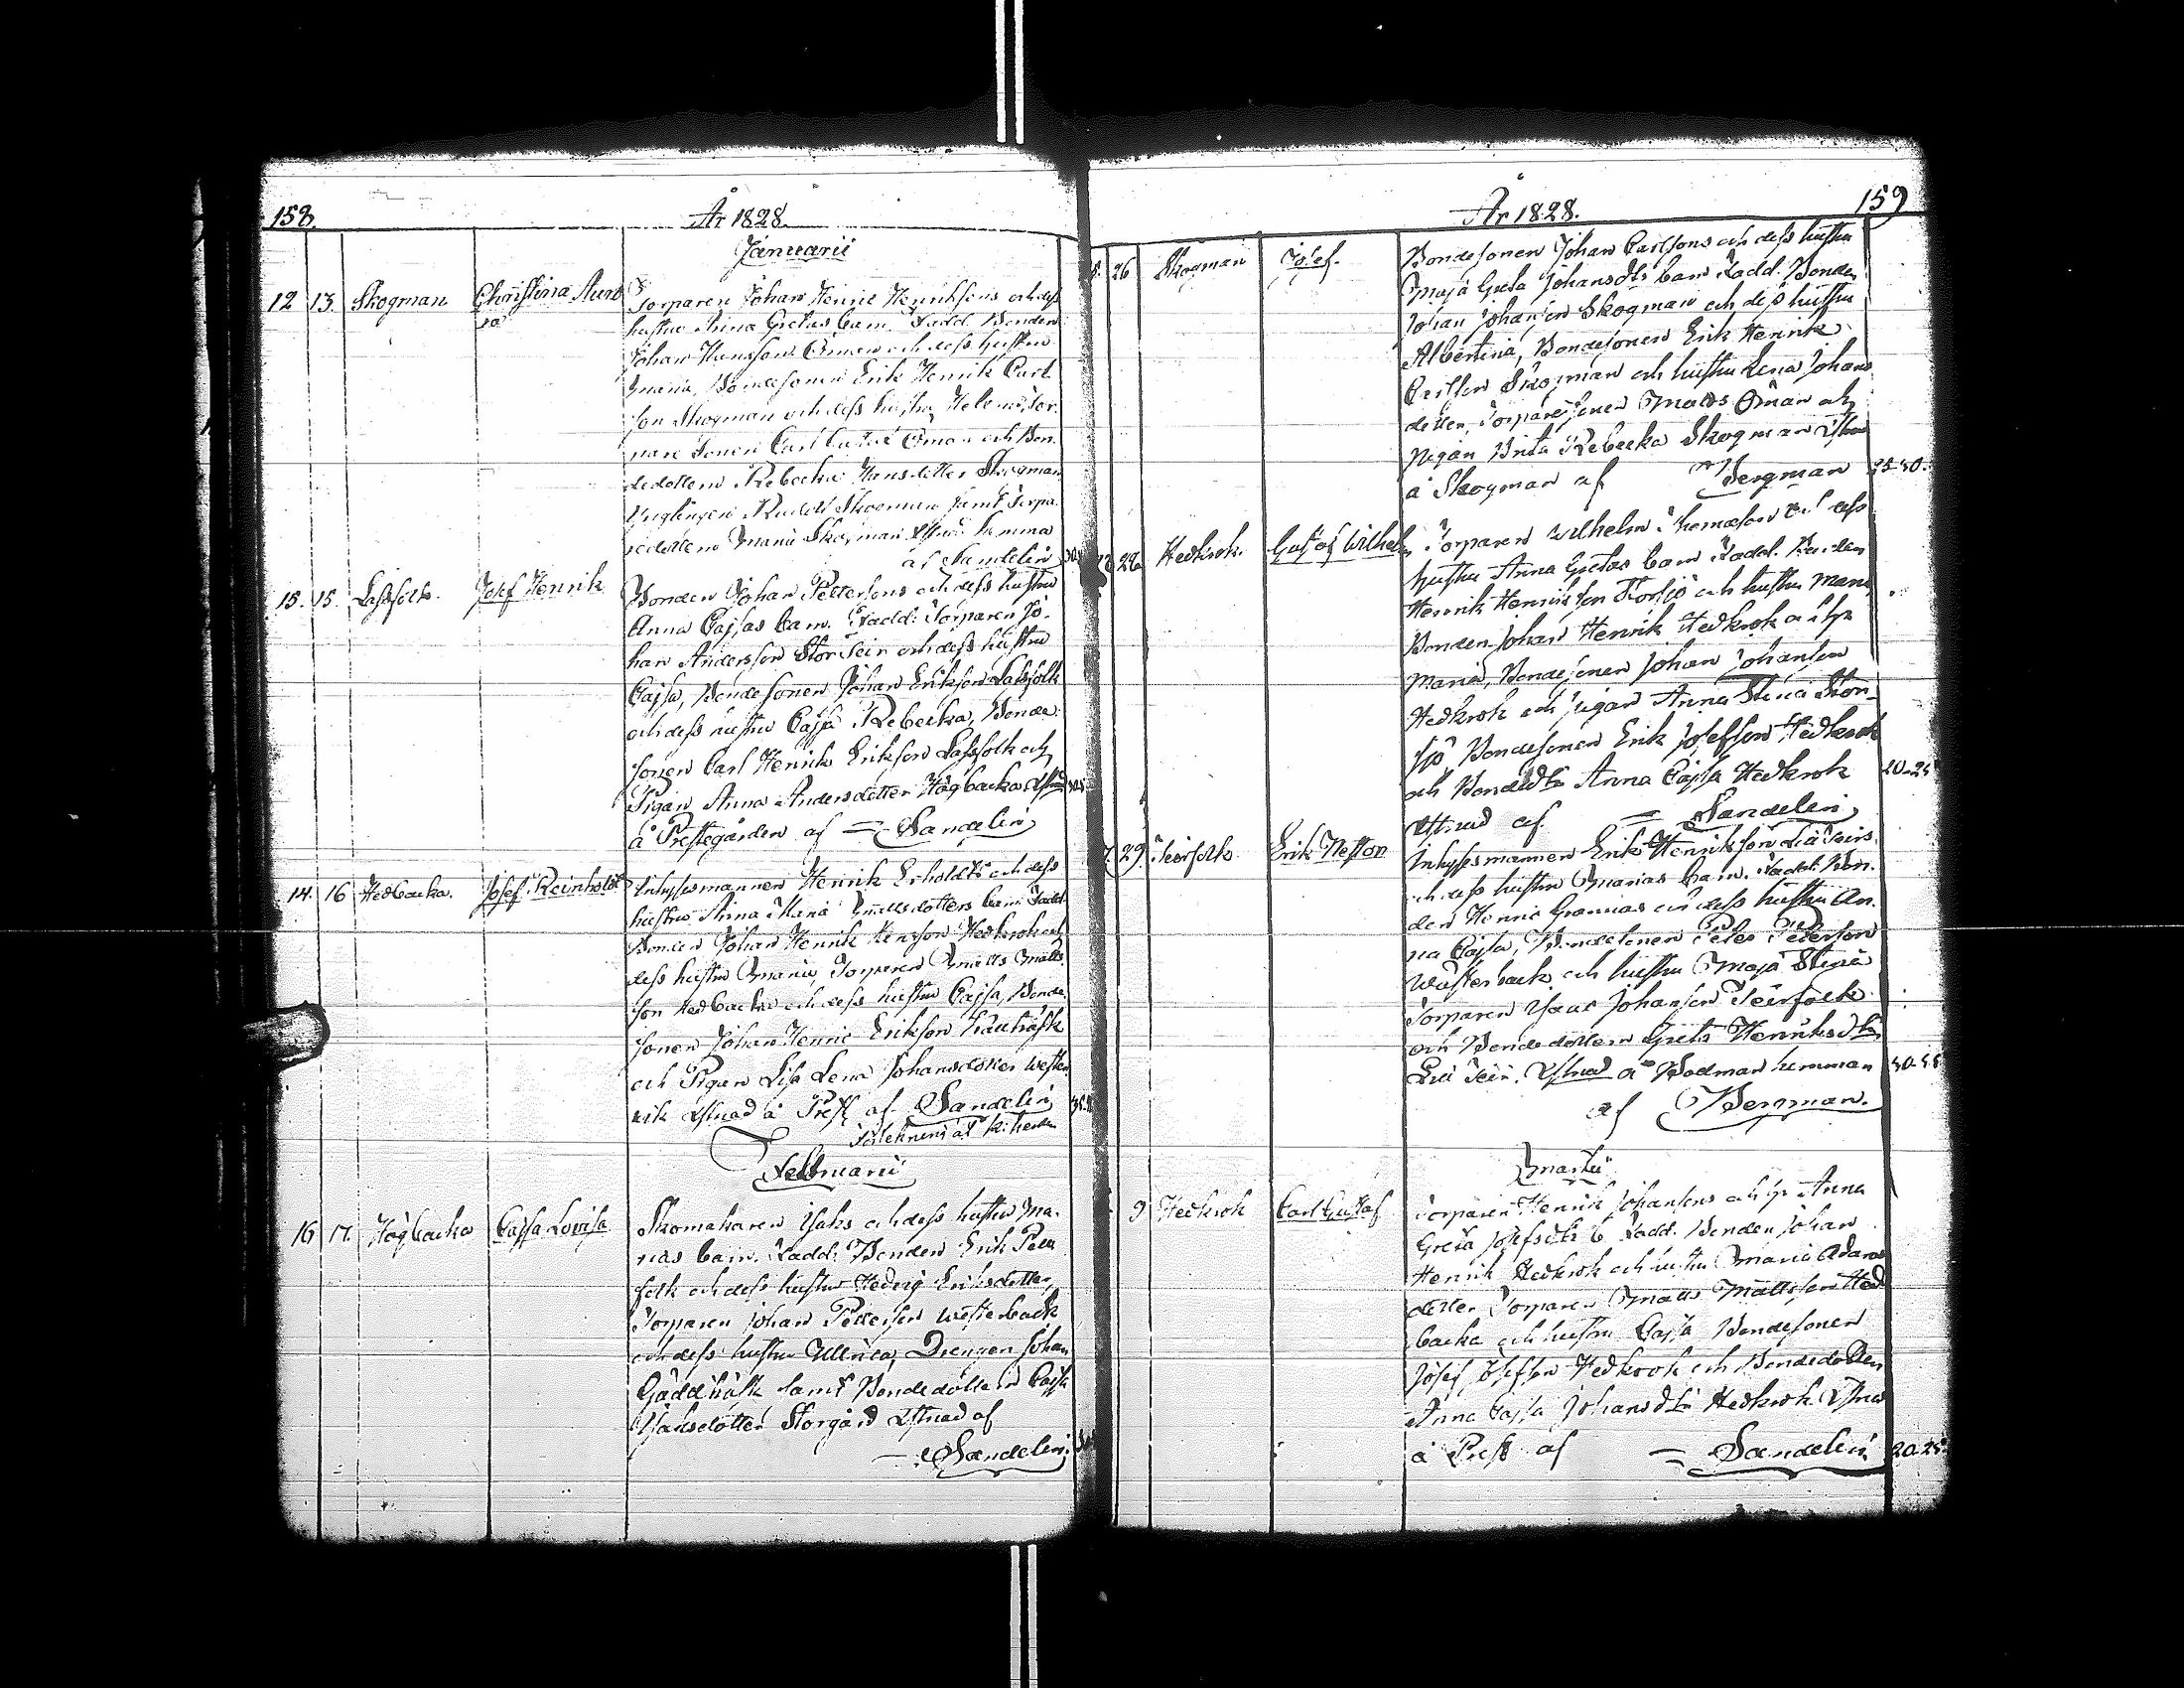 158.
År 1828.
Januarii
12 13. Skogman Christina Auro
ra
Torparen Johan Henric Henriksons och dess
hustru Anna Gretas barn. Fadd. Bonden
Johan Hansson Öman och dess hustru
Maria, Bondesonen Erik Henrik Carl
son Skogman och dess hustru Helena, Tor-
pare Sonen Carl Öman och Bon-
dedottern Rebecka Hansdotter Skogman
Ynglingen Skogman samt Torpa-
redottern Maria Skogman hemma
af Sandelin
15. 15. Lassfolk. Josef Henrik
Bonden Johan Pettersons och dess hustru
Anna Cajsas barn. Fadd: Torparen Jo-
han Anderson Stor Teir och dess hustru
Cajsa, Bondesonen Johan Erikson Lassfolk
och dess hustru Cajsa Rebecka, Bonde-
sonen Carl Henrik Erikson Lassfolk och
Pigan Anna Andersdotter Högbacka
å Prestegården af = Sandelin
14. 16 Hedbacka. Josef Reinholdt
Inhysesmannen Henrik Erholdts och dess
hustru Anna Maria Mattsdotters barn Fadd
Bonden Johan Henrik Henrson Hedkrok och
dess hustru Maria, Torparen Matts Matts
son Hedbacka och dess hustru Cajsa, Bonde-
sonen Johan Henric Erikson
och Pigan Lisa Lena Johansdotter Wester
vik Ystrad å Prest af Sandelin
Februarii
16 17. Högbacka Cajsa Lovisa
Skomakaren Isaks och dess hustru Ma-
rias barn. Fadd: Bonden Erik Pell
folk och dess hustru Hedvig Eriksdotter,
Torparen Johan Petterson Westerback
och dess hustru Ullrica, Drengen Johan
Gäddträsk samt Bondedottern Cajsa
Isaksdotter Storgård Ystrad af
= Sandelin
159
År 1828.
26 Skogman Josef.
Bondesonen Johan Carlsons och dess hustru
Maja Greta Johansdtrs barn Fadd. Bonden
Johan Johanson Skogman och dess hustru
Albertina, Bondesonen Erik Henrik
Carlson Skogman och hustru Lena Johans
dotter, Torparesonen Matts Öman och
Pigan Brita Rebecka Skogman
å Skogman af Bergman 25-30.
28 Hedkrok. Gustaf Wilhelm
Torparen Wilhelm Thomasson och dess
hustru Anna Gretas barn Fadd. Bonden
Henrik Henrikson Storsjö och hustru Maria
Bonden Johan Henrik Hedkrok och h:u
Maria, Bondesonen Johan Johanson
Hedkrok och Pigan Anna Stina Stor-
sjö, Bondesonen Erik Josefson Hedkrok
och Bonde Dtr Anna Cajsa Hedkrok 20-25
Ystrad af = Sandelin
29. Teirfolk Erik Neston
Inhysesmannen Erik Henrikson Lill Teirs
och dess hustru Marias barn. Fadd. Bon-
den Henric Grannas och dess hustru An-
na Cajsa, Bondesonen Peter Peterson
Wästerback och hustru Maja Stina
Torparen Isaac Johanson Teirfolk
och Bondedottern Greta Henriksdtr
Lill Teir. Ystrad å Bodman hemman 30-35
af Bergman.
Martii
9 Hedkrok Carl Gustaf
Torparen Henrik Johansons och h:u Anna
Greta Josefsdtrs b Fadd. Bonden Johan
Henrik Hedkrok och hustru Maria Adams
dotter Torparen Matts Mattsson Hed
backa och hustru Cajsa Bondesonen
Josef Josefson Hedkrok och Bondedottern
Anna Cajsa Johansdtr Hedkrok Ystrad
å Prest af = Sandelin 20-25.